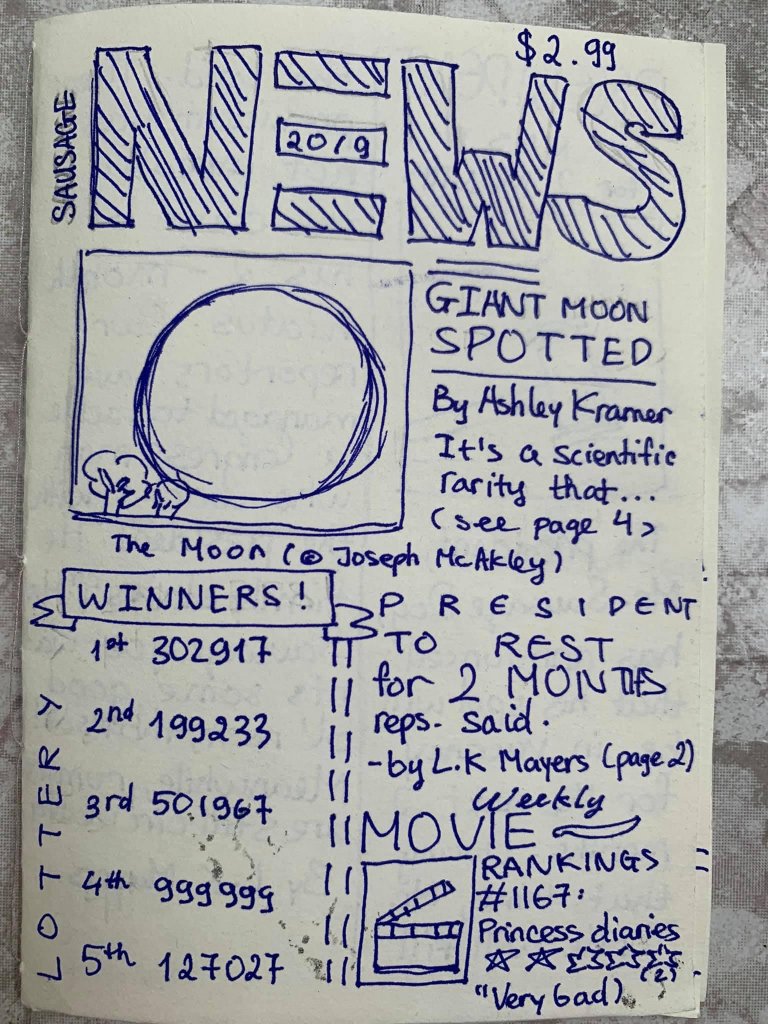 $2.99
SAUSAGE
NEWS
2019
GIANT MOON
SPOTTED
By Ashley Kramer
It's a scientific
rarity that...
(see page 4>
The Moon (© Joseph McAkley)
WINNERS!
LOTTERY
1st 302917
2nd 199233
3rd 501967
4th 999999
5th 127027
PRESIDENT
TO REST
for 2 MONTHS
reps. said.
-by L.K Mayers (page 2)
Weekly
MOVIE
RANKINGS
#1167:
Princess diaries
(2)
"Very bad)